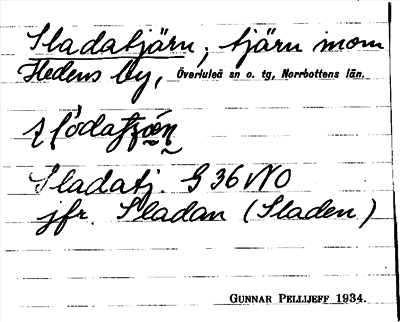 Sladatjärn, tjärn inom
Hedens by, Överluleå sn o. tg, Norrbottens län.
Sladatj. G 36 NO
jfr. Sladan (Sladen)
GUNNAR PELLIJEFF 1934.